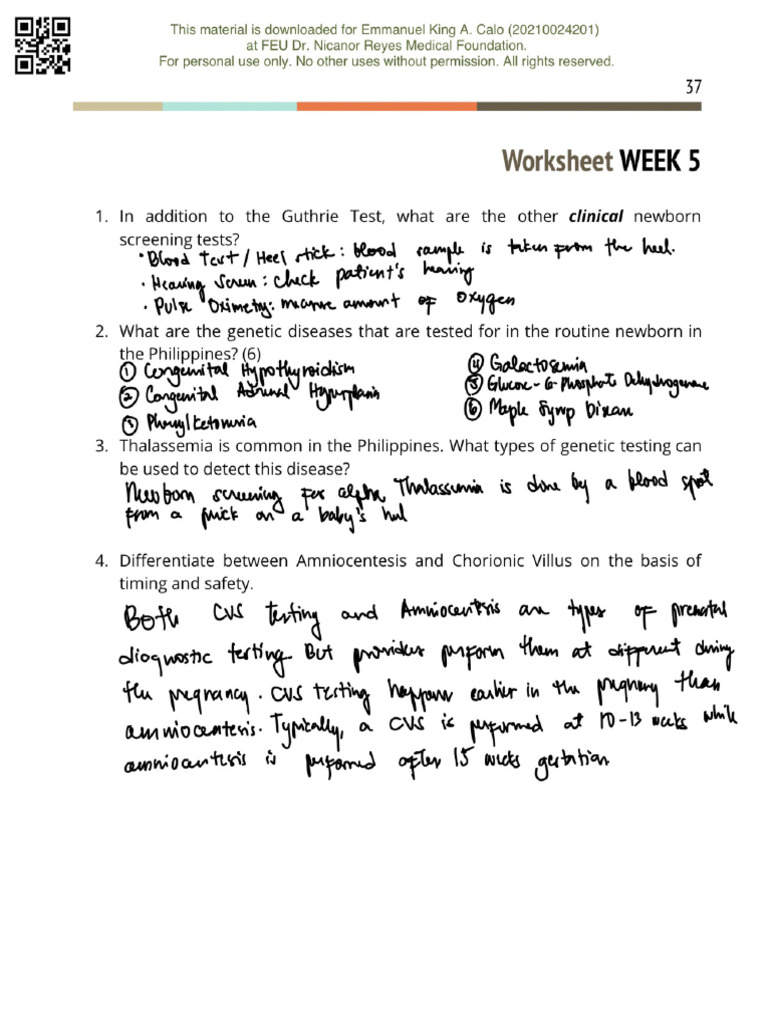 This material is downloaded for Emmanuel King A. Calo (20210024201)
at FEU Dr. Nicanor Reyes Medical Foundation.
For personal use only. No other uses without permission. All rights reserved.
37
Worksheet WEEK 5
1. In addition to the Guthrie Test, what are the other clinical newborn
screening tests?
• Blood Test / Heel stick : blood sample is taken from the heel.
• Hearing Screen : check patient's hearing
• Pulse Oximetry : measure amount of oxygen
2. What are the genetic diseases that are tested for in the routine newborn in
the Philippines? (6)
① Congenital Hypothyroidism
② Congenital Adrenal Hyperplasia
③ Phenylketonuria
④ Galactosemia
⑤ Glucose-6-Phosphate Dehydrogenase
⑥ Maple Syrup Disease
3. Thalassemia is common in the Philippines. What types of genetic testing can
be used to detect this disease?
Newborn screening for alpha Thalassemia is done by a blood spot
from a prick on a baby's heel
4. Differentiate between Amniocentesis and Chorionic Villus on the basis of
timing and safety.
Both CVS testing and Amniocentesis are types of prenatal
diagnostic testing. But providers perform them at different during
the pregnancy. CVS testing happens earlier in the pregnancy than
amniocentesis. Typically, a CVS is performed at 10-13 weeks while
amniocentesis is performed after 15 weeks gestation